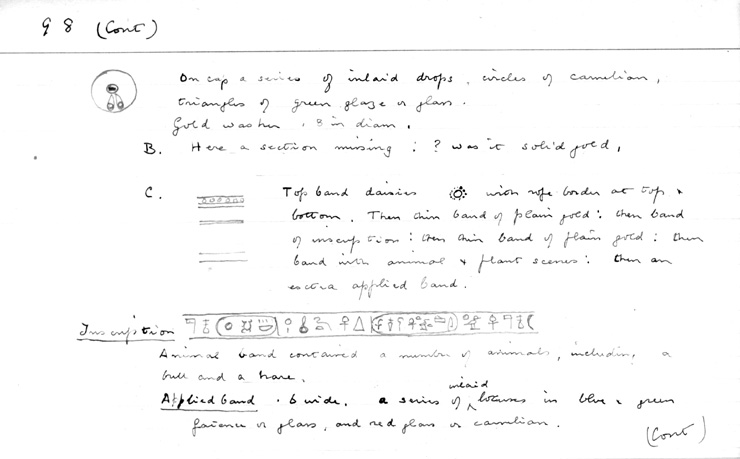 98 (Cont)
On cap a series of inlaid drops, circles of carnelian,
triangles of green glaze or glass.
Gold washer .8 in diam.
B. Here a section missing : ? was it solid gold.
C. Top band daisies with rope border at top &
bottom. Then thin band of plain gold : then band
of inscription : then thin band of plain gold : then
band with animal & plant scenes : then an
extra applied band.
Inscription
Animal band contained a number of animals, including a
bull and a hare.
Applied band .6 wide. a series of inlaid lotuses in blue & green
faience or glass, and red glass or carnelian.
(Cont)